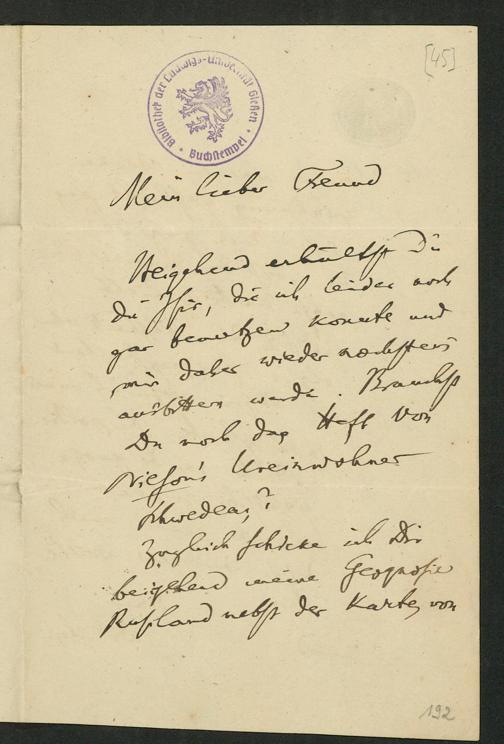 [45]
Bibliothek der Ludwigs-Universität Gießen
Buchstempel
Mein lieber Freund
Beigehend erhältst Du
die die ich leider noch
gar benutzen konnte und
mir daher wieder nächstens
ausbitten werde. Brauchst
Du noch das Heft von
Nilson's Ureinwohner
Schwedens?
Zugleich schicke ich Dir
beigehend meine Geognosie
Rußland nebst der Karte, von
192